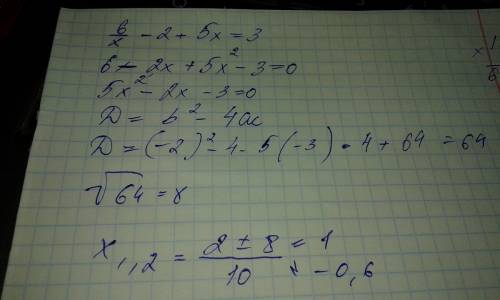 6/x - 2 + 5x = 3
6 - 2x + 5x² - 3 = 0
5x² - 2x - 3 = 0
D = b² - 4ac
D = (-2)² - 4 · 5 (-3) = 4 + 64 = 64
√64 = 8
x₁,₂ = (2 ± 8)/10 = 1
-0,6